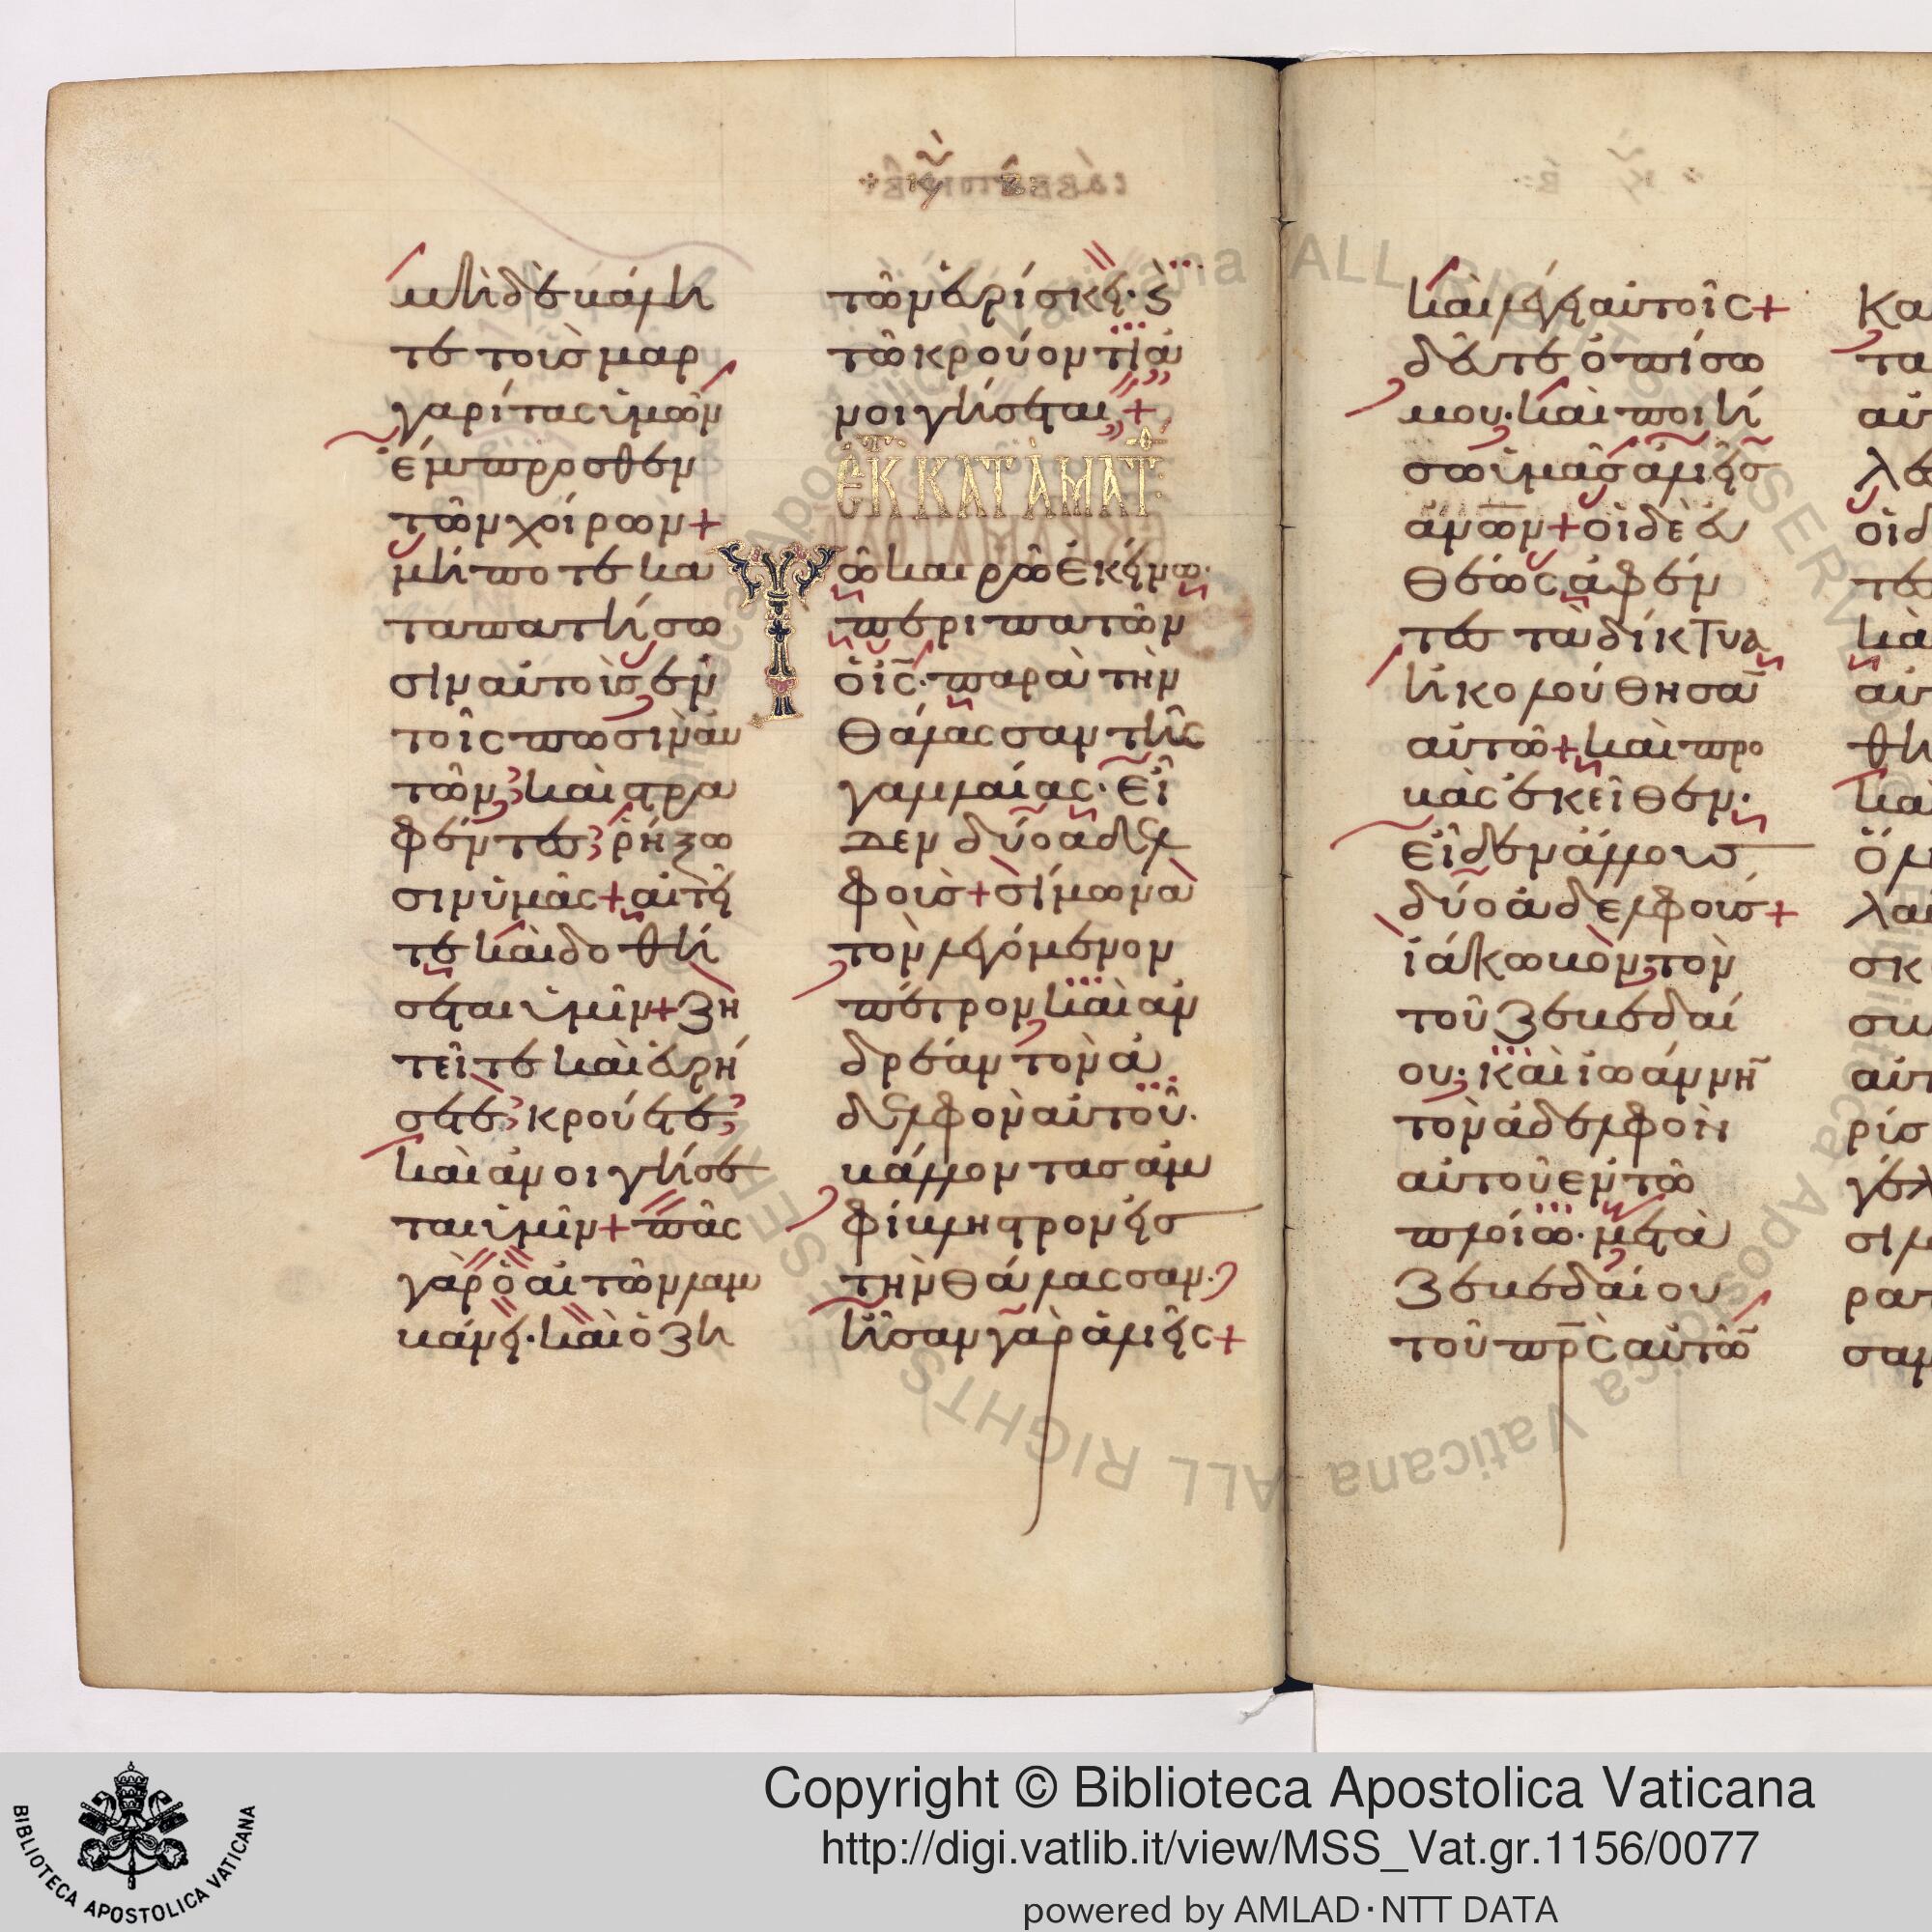 μὴ δὲ βάλη
τε τοὺς μαρ
γαρίτας ὑμῶν
ἔμπροσθεν
τῶν χοίρων+
μήποτε κα
ταπατήσω
σιν αὐτοὺς ἐν
τοῖς ποσὶν αὐ
τῶν καὶ στρα
φέντες ῥήξω
σιν ὑμᾶς+ αἰτεῖ
τε καὶ δοθή
σεται ὑμῖν+ ζη
τεῖτε καὶ εὑρή
σετε κρούετε
καὶ ἀνοιγήσε
ται ὑμῖν+ πᾶς
γὰρ ὁ αἰτῶν λαμ
βάνει· καὶ ὁ ζη
τῶν εὑρίσκει· ϛ
τῶ κρούοντι ἀ
νοιγήσεται+
ἐκ κατὰ ματ
Τῶ καιρῶ ἐκείνω·
περιπατῶν
ὁ ις· παρὰ τὴν
θάλασσαν τῆς
γαλιλαίας· εἶ
δεν δύο ἀδελ
φοὺς+ σίμωνα
τὸν λεγόμενον
πέτρον καὶ ἀν
δρέαν τὸν ἀ
δελφὸν αὐτοῦ·
βάλλοντας ἀμ
φίβληστρον εἰς
τὴν θάλασσαν·
ἦσαν γὰρ ἁλιεῖς+
καὶ λέγει αὐτοῖς+
δεῦτε ὀπίσω
μου· καὶ ποιή
σω ὑμᾶς ἁλιεῖς
ἀνων+ οἱ δὲ εὐ
θέως ἀφέν
τες τὰ δίκτυα
ἠκολούθησαν
αὐτῶ+ καὶ προ
βὰς ἐκεῖθεν·
εἶδεν ἄλλους
δύο ἀδελφοὺς+
ἰάκωβον τὸν
τοῦ ζεβεδαί
ου· καὶ ἰωάννην
τὸν ἀδελφὸν
αὐτοῦ ἐν τῶ
πλοίω· μετὰ
ζεβεδαίου
τοῦ πρς αὐτῶν
Copyright © Biblioteca Apostolica Vaticana
http://digi.vatlib.it/view/MSS_Vat.gr.1156/0077
powered by AMLAD·NTT DATA
BIBLIOTECA APOSTOLICA VATICANA